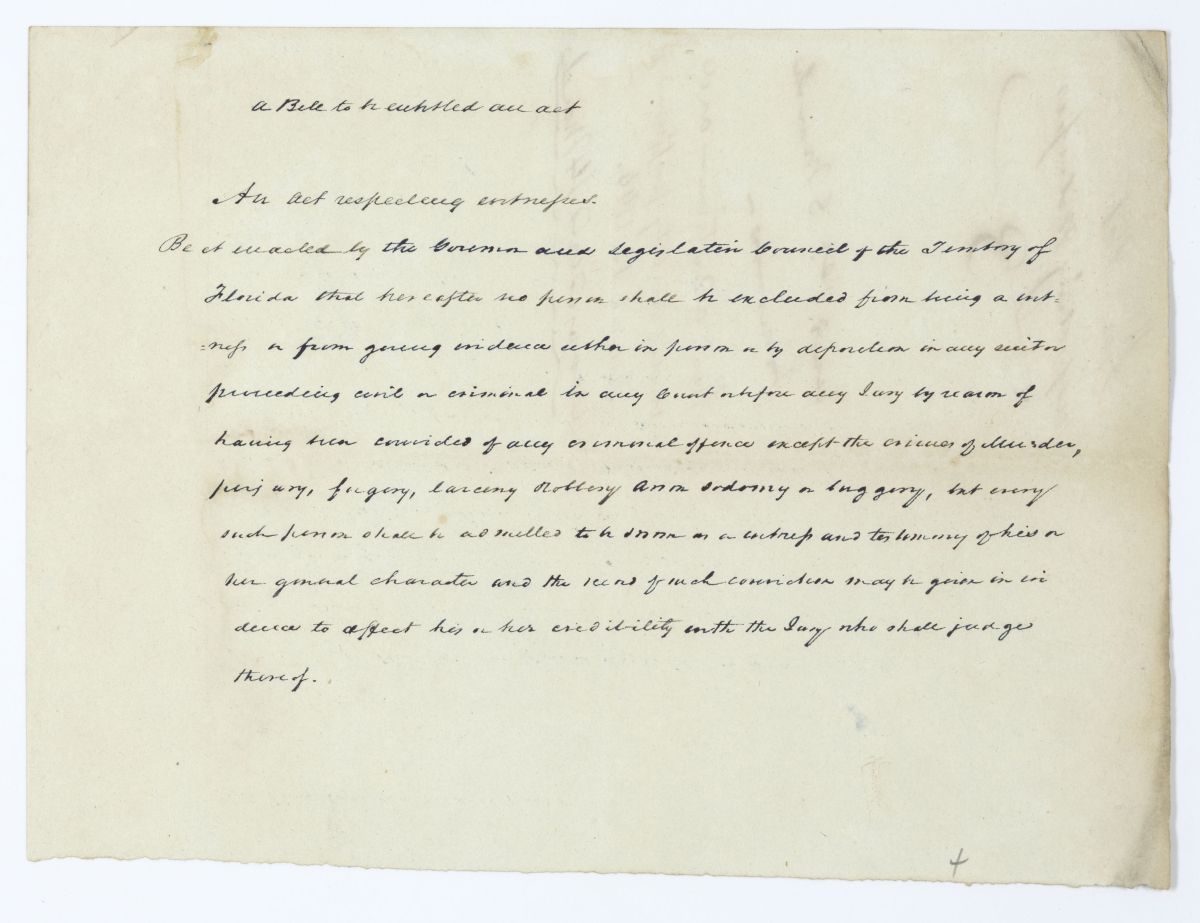 a Bill to be entitled an act
An Act respecting witnesses.
Be it enacted by the Governor and Legislative Council of the Territory of
Florida that hereafter no person shall be excluded from being a wit=
=ness or from giving evidence either in person or by deposition in any suit or
proceeding civil or criminal in any Court or before any Jury by reason of
having been convicted of any criminal offence except the crimes of Murder,
perjury, forgery, larceny Robbery Arson sodomy or buggery, but every
such person shall be admitted to be sworn as a witness and testimony of his or
her general character and the record of such conviction may be given in evi
dence to affect his or her credibility with the Jury who shall judge
thereof.